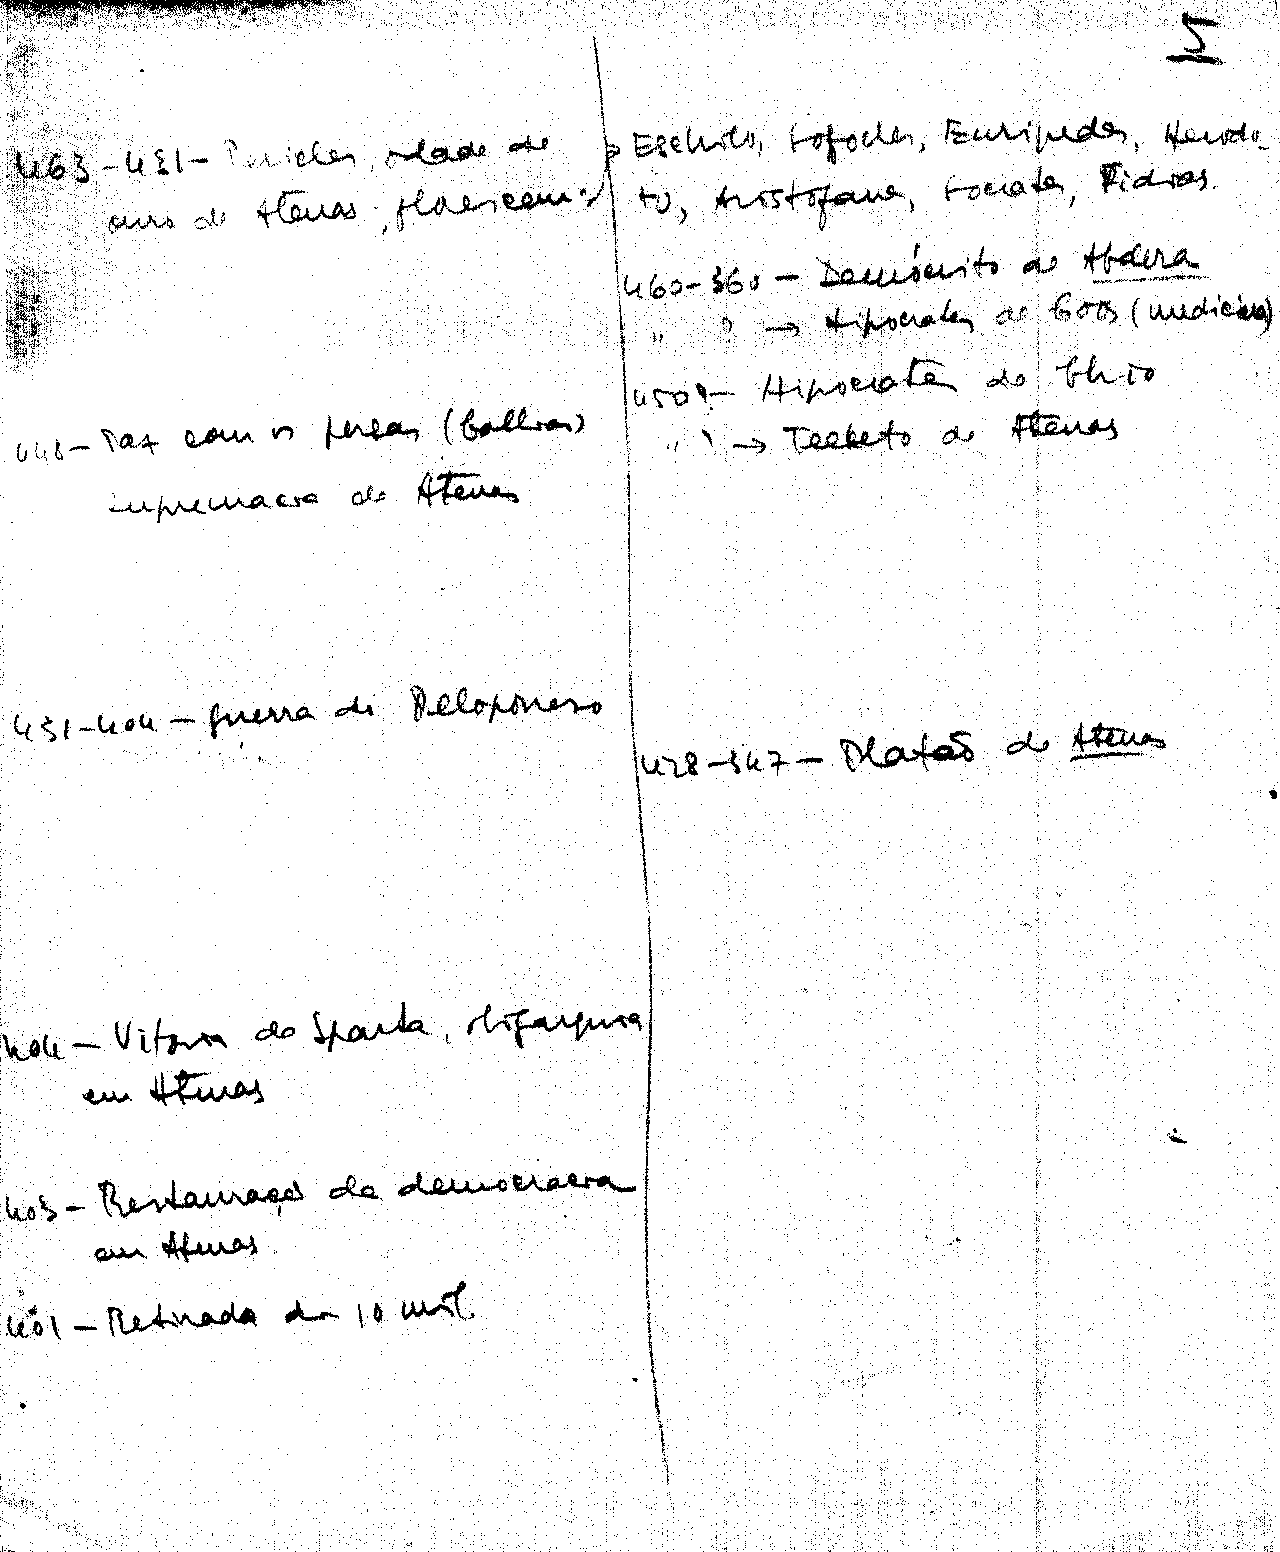 5
463-431- Pericles, idade de
ouro de Atenas, floresceram:
Eschilo, Sofocles, Euripedes, Herodo-
to, Aristófanes, Socrates, Fidias.
460-360 - Demócrito de Abdera
" " → Hipocrates de Coos (medicina)
450? - Hipocrates de Chio
" ? → Teeteto de Atenas
448- Paz com os persas (Callias)
supremacia de Atenas
431-404 - guerra do Peloponeso
428-347 - Platão de Atenas
404 - Vitoria de Sparta, oligarquia
em Atenas
403 - Restauração da democracia
em Atenas
401 - Retirada dos 10 mil.